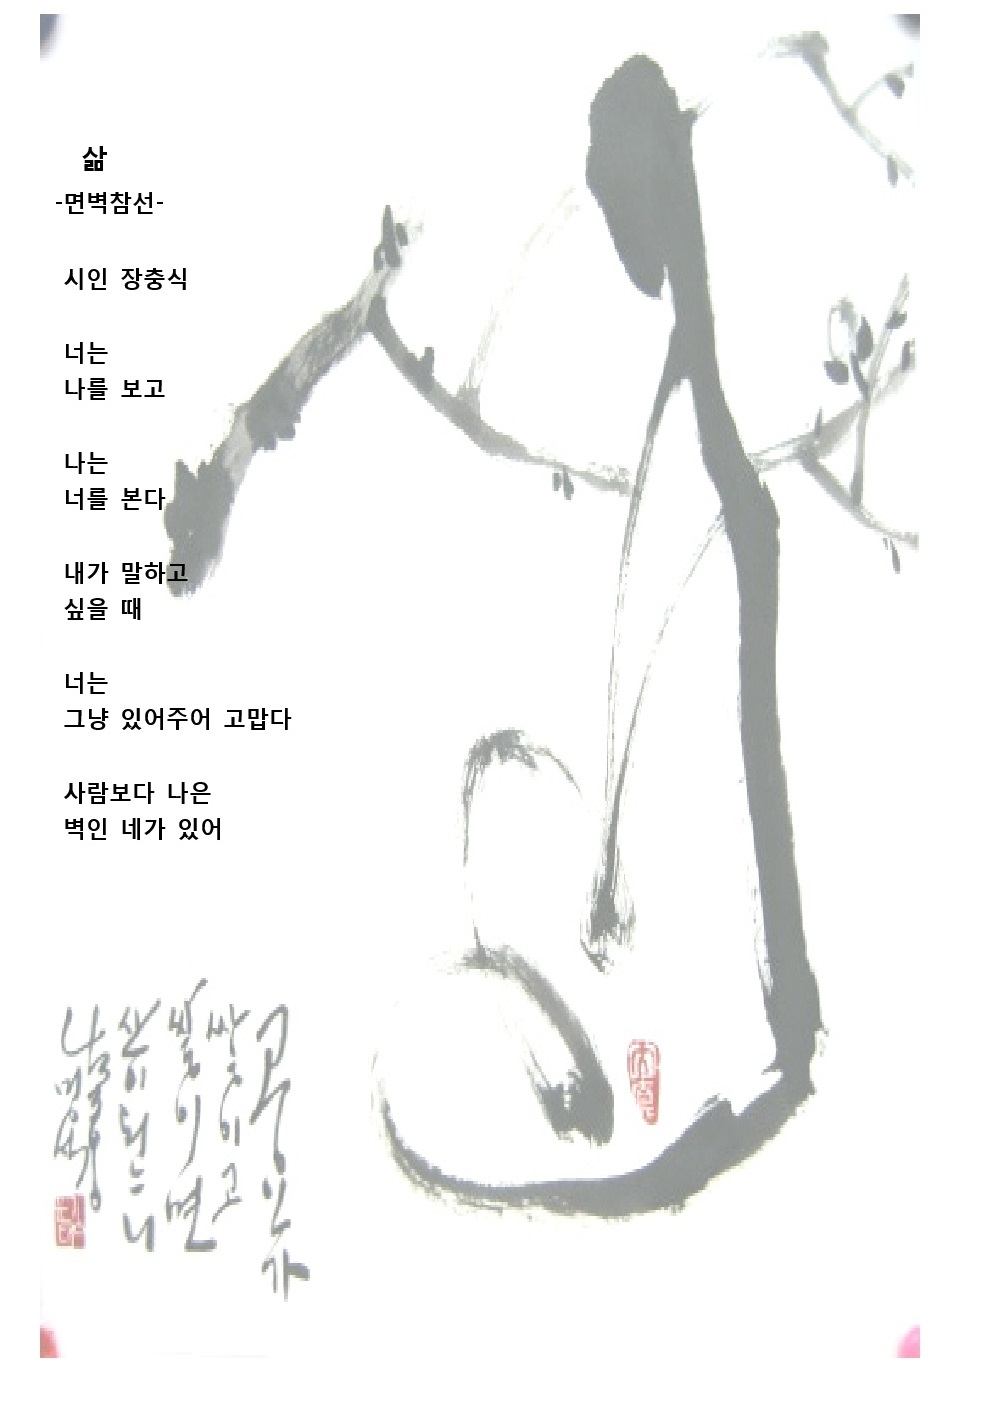 삶
-면벽참선-
시인 장충식
너는
나를 보고
나는
너를 본다
내가 말하고
싶을 때
너는
그냥 있어주어 고맙다
사람보다 나은
벽인 네가 있어
고
쌓이고
쌓이면
산이 되느니